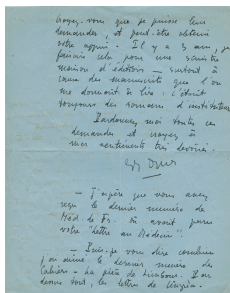 croyez-vous que je puisse leur
demander, et peut-être obtenir
votre appui. Il y a 3 ans, je
faisais cela pour une
maison d'éditions — surtout à
cause des manuscrits que l'on
me donnait à lire : c'était
toujours des romans d'institutrices
Pardonnez moi toutes ces
demandes et croyez à
mes sentiments très dévoués.
— J'espère que vous avez
reçu le dernier numéro de
où avait paru
votre "Lettre au Médecin".
— Puis-je vous dire combien
j'ai aimé le dernier numéro des
Cahiers — La pièce de Limbour.
tout, les lettres de